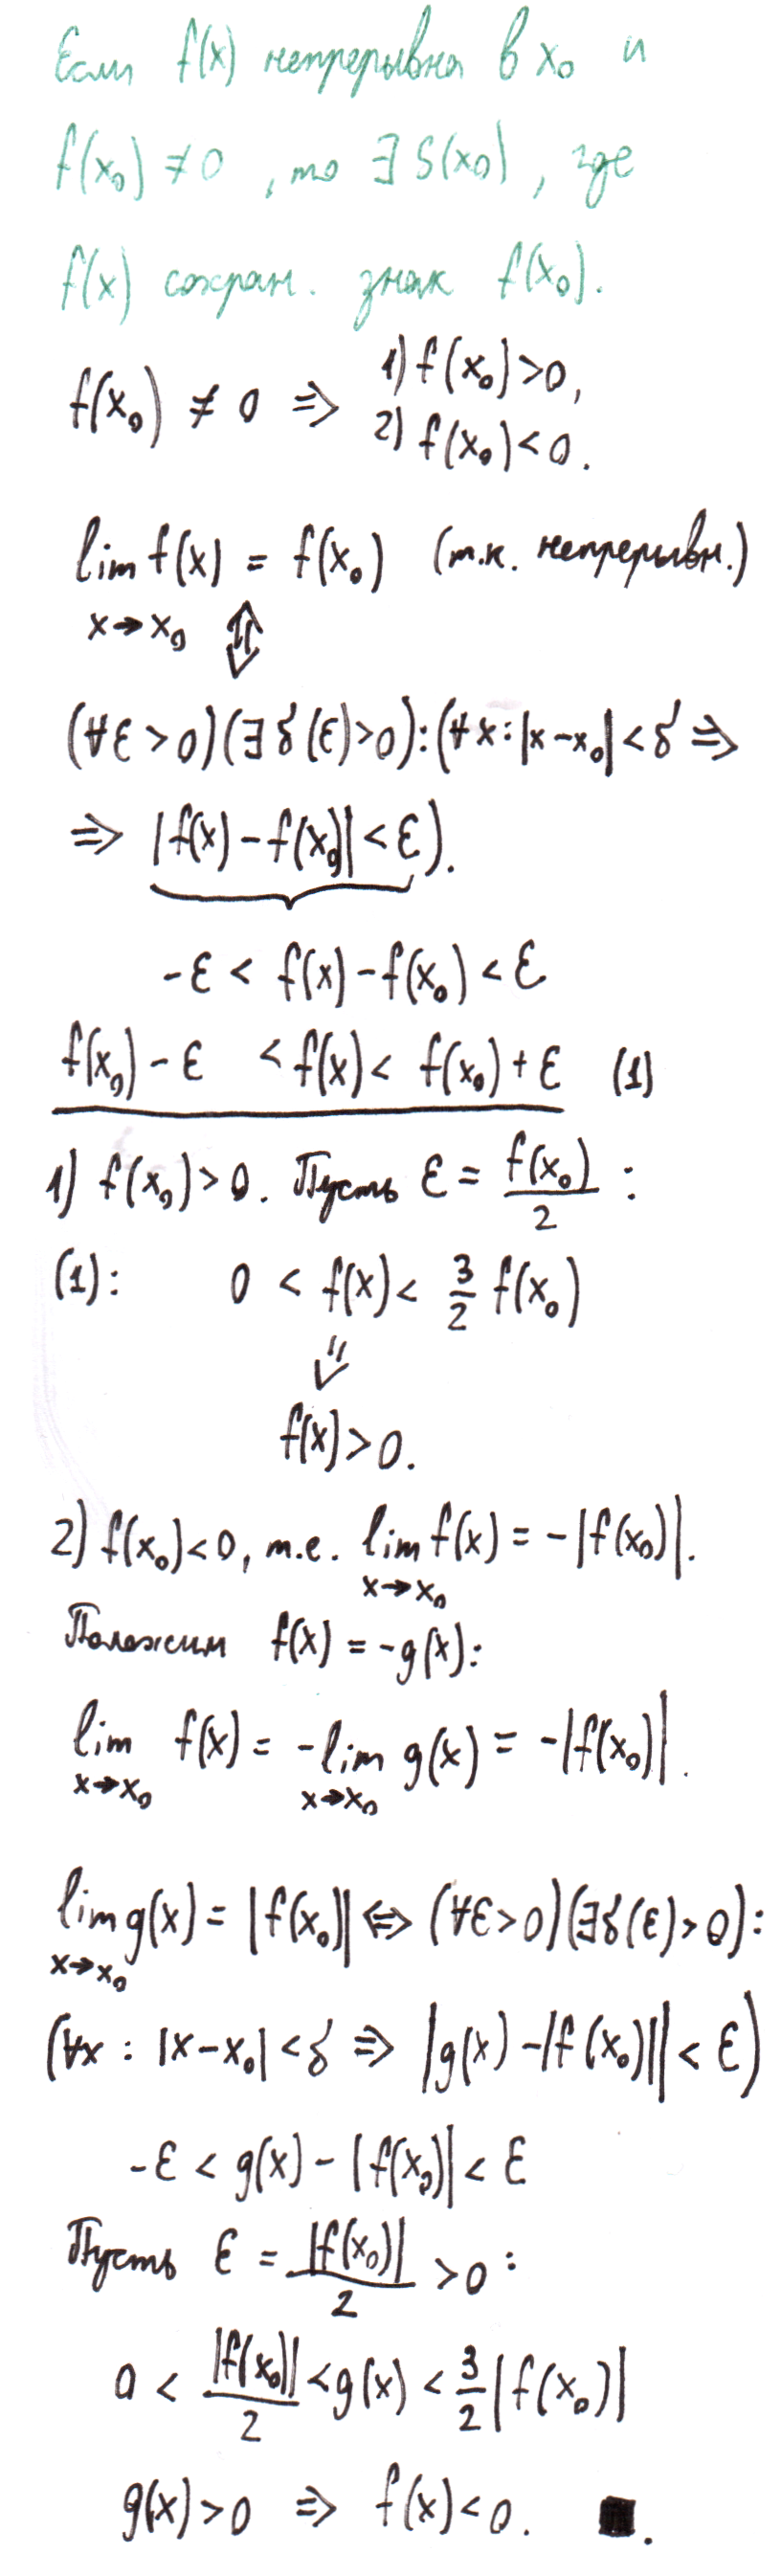 Если f(x) непрерывна в x₀ и
f(x₀) ≠ 0, то ∃ S(x₀), где
f(x) сохран. знак f(x₀).
f(x₀) ≠ 0 ⇒ 1) f(x₀) > 0,
2) f(x₀) < 0.
lim f(x) = f(x₀) (т.к. непрерывн.)
x→x₀ ⇕
(∀ε > 0)(∃ δ(ε) > 0): (∀x: |x - x₀| < δ ⇒
⇒ |f(x) - f(x₀)| < ε).
-ε < f(x) - f(x₀) < ε
f(x₀) - ε < f(x) < f(x₀) + ε (1)
1) f(x₀) > 0. Пусть ε = f(x₀)/2 :
(1): 0 < f(x) < 3/2 f(x₀)
⇓
f(x) > 0.
2) f(x₀) < 0, т.е. lim f(x) = -|f(x₀)|.
x→x₀
Положим f(x) = -g(x):
lim f(x) = -lim g(x) = -|f(x₀)|.
x→x₀ x→x₀
lim g(x) = |f(x₀)| ⇔ (∀ε > 0)(∃ δ(ε) > 0):
x→x₀
(∀x : |x - x₀| < δ ⇒ |g(x) - |f(x₀)|| < ε)
-ε < g(x) - |f(x₀)| < ε
Пусть ε = |f(x₀)|/2 > 0 :
0 < |f(x₀)|/2 < g(x) < 3/2 |f(x₀)|
g(x) > 0 ⇒ f(x) < 0. ■.